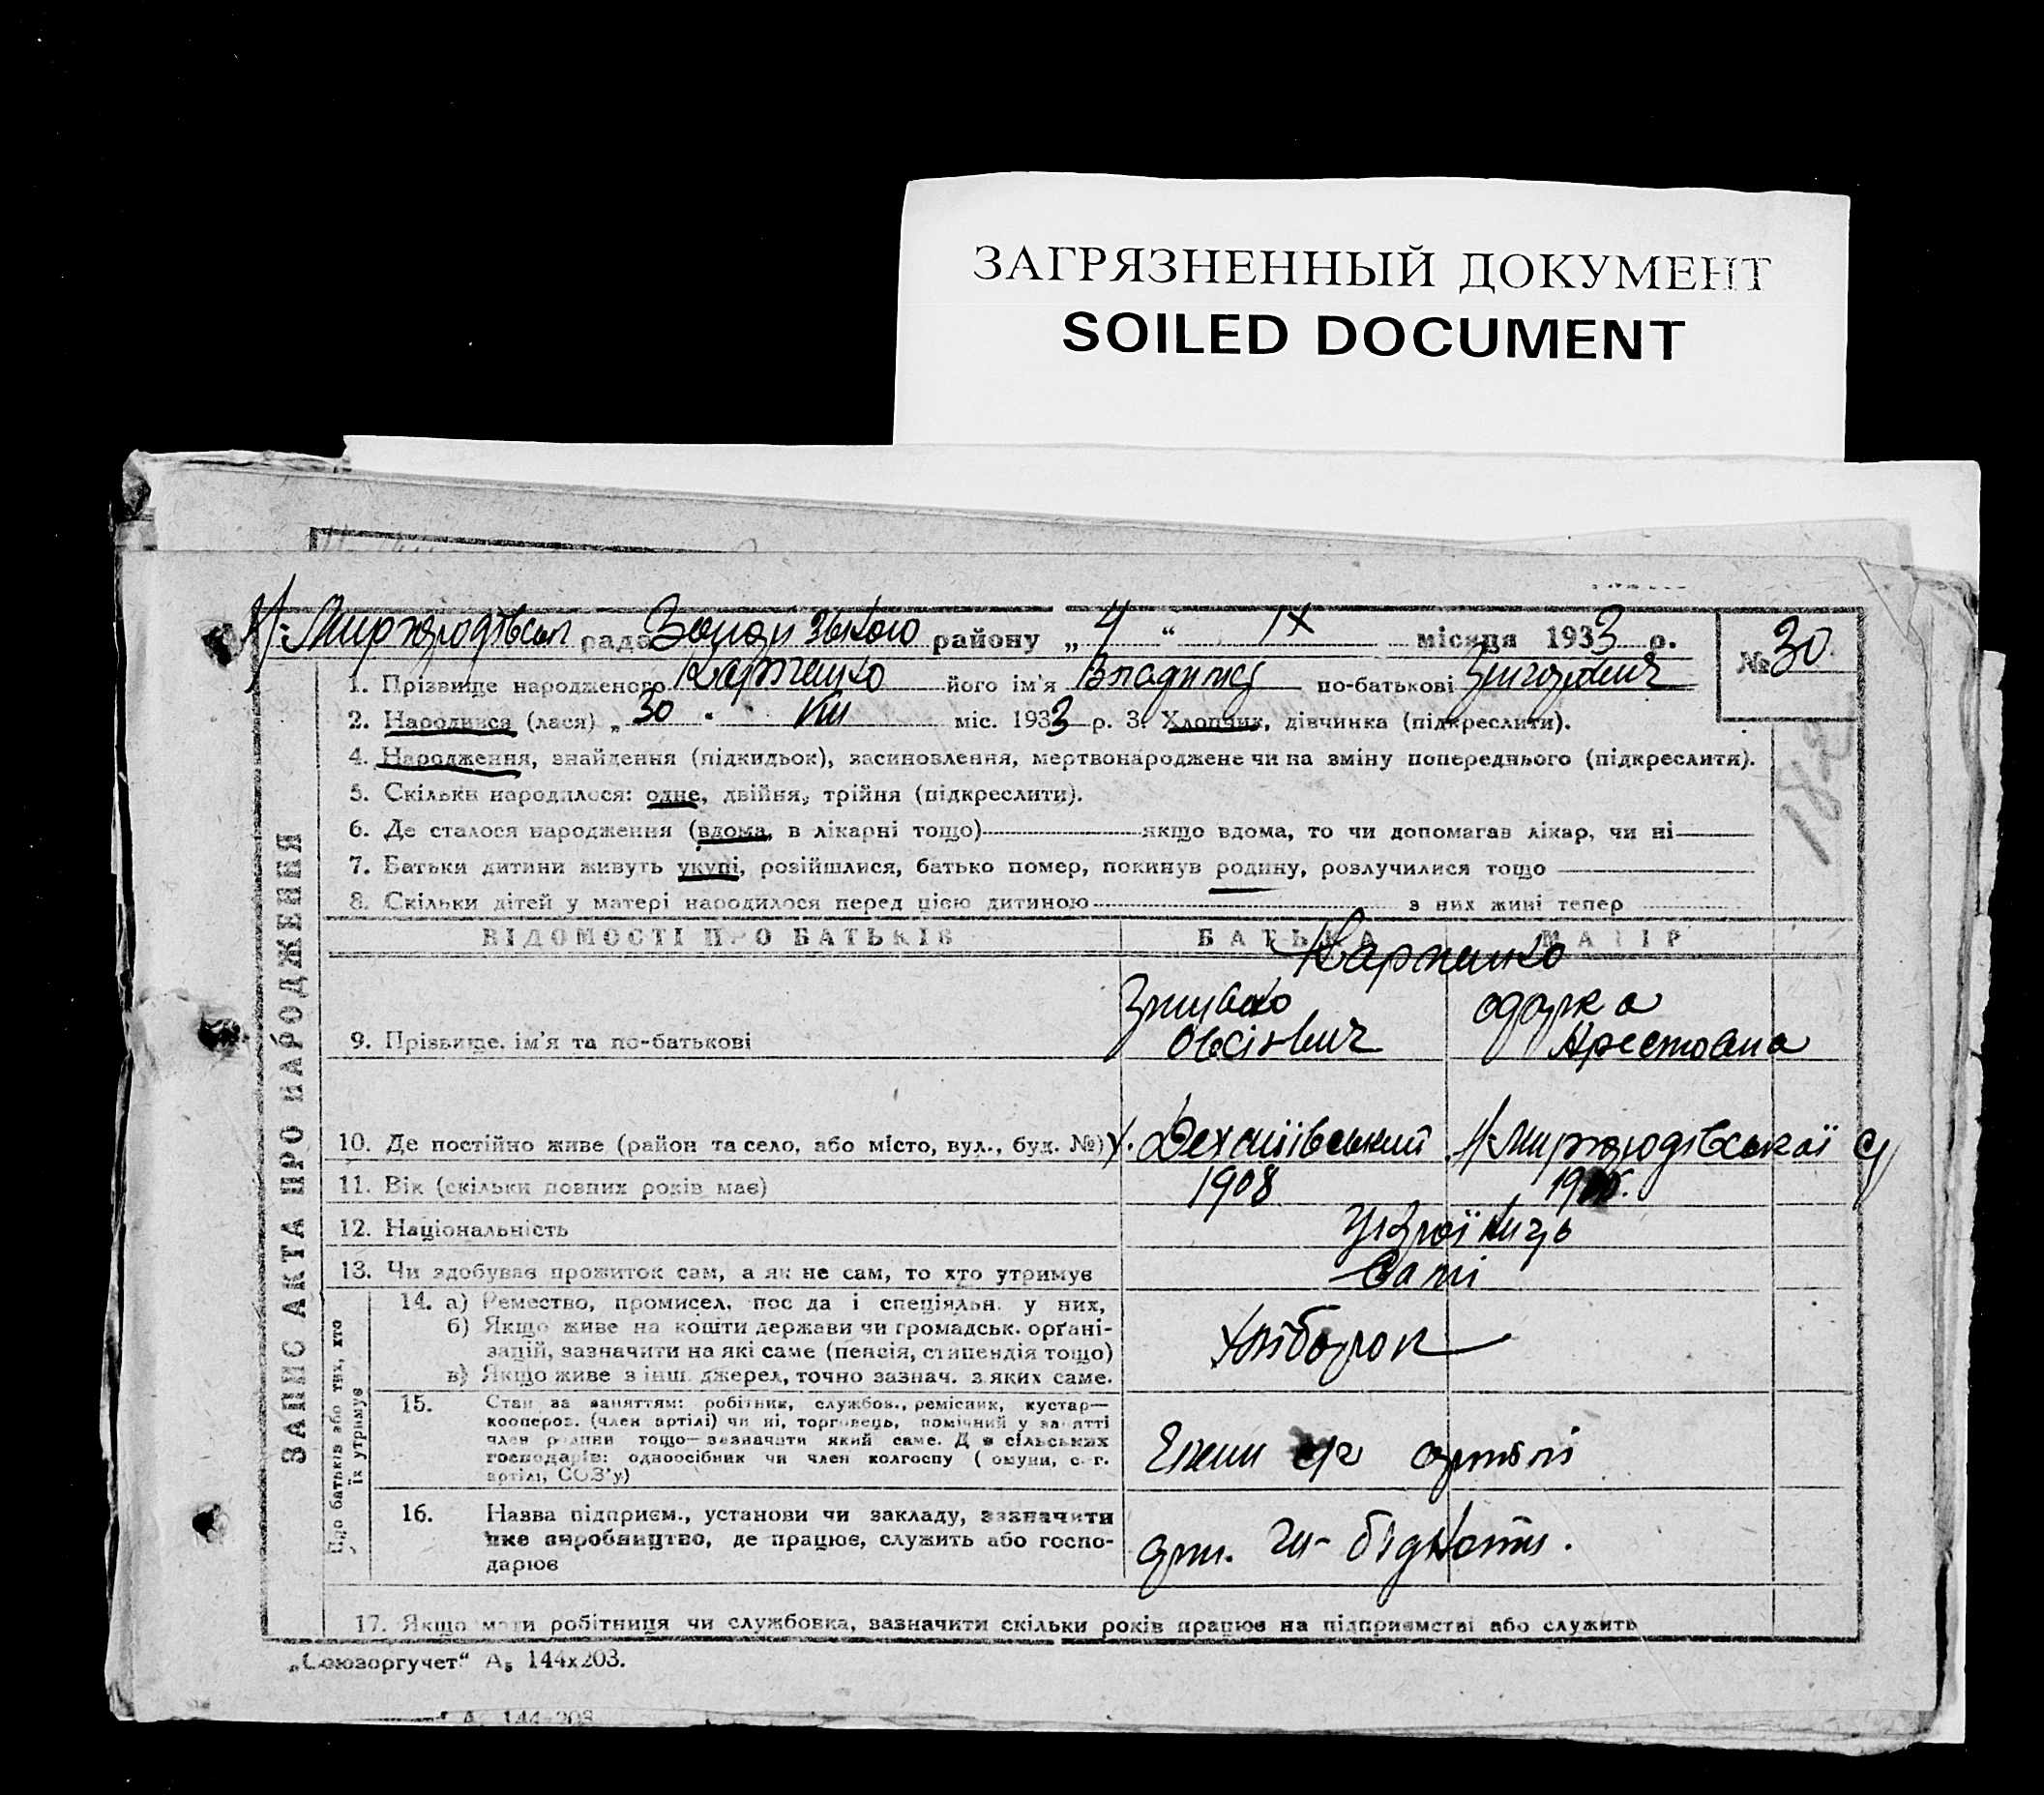 ЗАГРЯЗНЕННЫЙ ДОКУМЕНТ
SOILED DOCUMENT
рада району „ 4 “ IX місяця 1933 р.
№ 30
1. Прізвище народженого Карпенко його ім'я Владимир по-батькові Григорович
2. Народився (лася) „ 30 VIII міс. 1933 р. 3. Хлопчик, дівчинка (підкреслити).
4. Народження, знайдення (підкидьок), засиновлення, мертвонароджене чи на зміну попереднього (підкреслити).
5. Скільки народилося: одне, двійня, трійня (підкреслити).
6. Де сталося народження (вдома, в лікарні тощо) якщо вдома, то чи допомагав лікар, чи ні
7. Батьки дитини живуть укупі, розійшлися, батько помер, покинув родину, розлучилися тощо
8. Скільки дітей у матері народилося перед цією дитиною з них живі тепер
182
ЗАПИС АКТА ПРО НАРОДЖЕННЯ
ВІДОМОСТІ ПРО БАТЬКІВ БАТЬКА МАТІР
Карпенко
9. Прізвище, ім'я та по-батькові Грицько Овсієвич Одарка Арестовна
10. Де постійно живе (район та село, або місто, вул., буд. №) х.
11. Вік (скільки повних років має) 1908
12. Національність Українці
13. Чи здобуває прожиток сам, а як не сам, то хто утримує Самі
Що батьків або тих, хто їх утримує
14. а) Ремество, промисел, посада і спеціяльн. у них,
б) Якщо живе на кошти держави чи громадськ. органі-
зацій, зазначити на які саме (пенсія, стипендія тощо)
в) Якщо живе з інш. джерел, точно зазнач. з яких саме.
Хлібороп
15. Стан за заняттям: робітник, службов., ремісник, кустар—
коопероз. (член артілі) чи ні, торговець, помічний у занятті
член родини тощо—зазначати який саме. Для сільських
господарів: одноосібник чи член колгоспу (комуни, с.-г.
артілі, СОЗ'у)
Член с/г артілі
16. Назва підприєм., установи чи закладу, зазначити
яке виробництво, де працює, служить або госпо-
дарює
арт. бідноти.
17. Якщо мати робітниця чи службовка, зазначити скільки років працює на підприємстві або служить
„Союзоргучет“ А₅ 144х203.
А 144-203